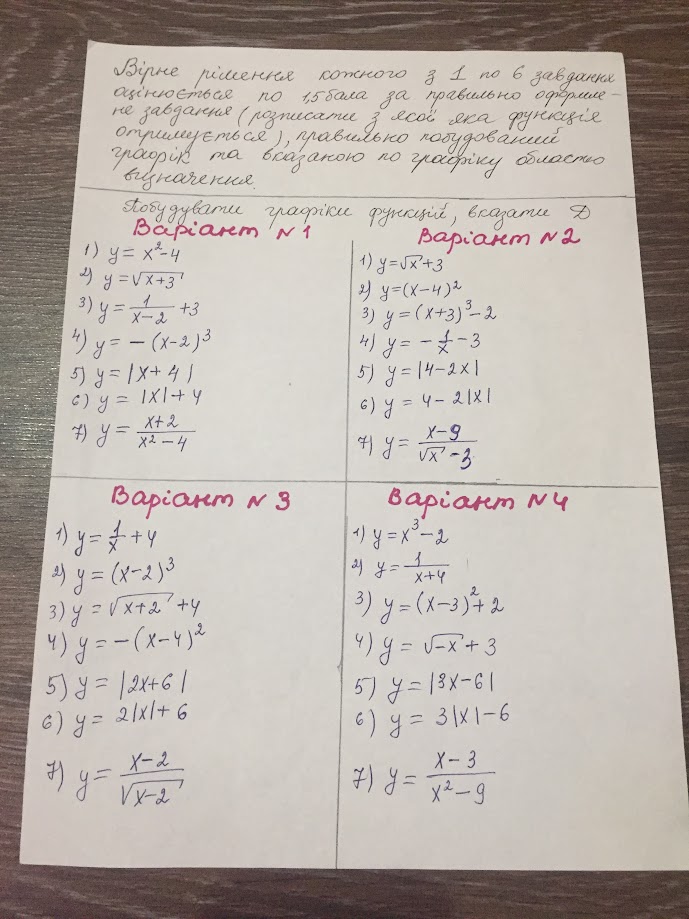 Вірне рішення кожного з 1 по 6 завдання
оцінюється по 1,5 бала за правильно оформле-
не завдання (розписати з якої яка функція
отримується), правильно побудований
графік та вказаною по графіку областю
визначення.
Побудувати графіки функцій, вказати D
Варіант №1
1) y = x² - 4
2) y = √(x+3)
3) y = 1/(x-2) + 3
4) y = -(x-2)³
5) y = |x+4|
6) y = |x|+4
7) y = (x+2)/(x²-4)
Варіант №2
1) y=√x+3
2) y=(x-4)²
3) y=(x+3)³-2
4) y= -1/x -3
5) y=|4-2x|
6) y= 4-2|x|
7) y= (x-9)/(√x -3)
Варіант №3
1) y= 1/x +4
2) y= (x-2)³
3) y= √(x+2) +4
4) y= -(x-4)²
5) y= |2x+6|
6) y= 2|x|+6
7) y= (x-2)/√(x-2)
Варіант №4
1) y=x³-2
2) y= 1/(x+4)
3) y=(x-3)²+2
4) y= √(-x) +3
5) y=|3x-6|
6) y= 3|x|-6
7) y= (x-3)/(x²-9)